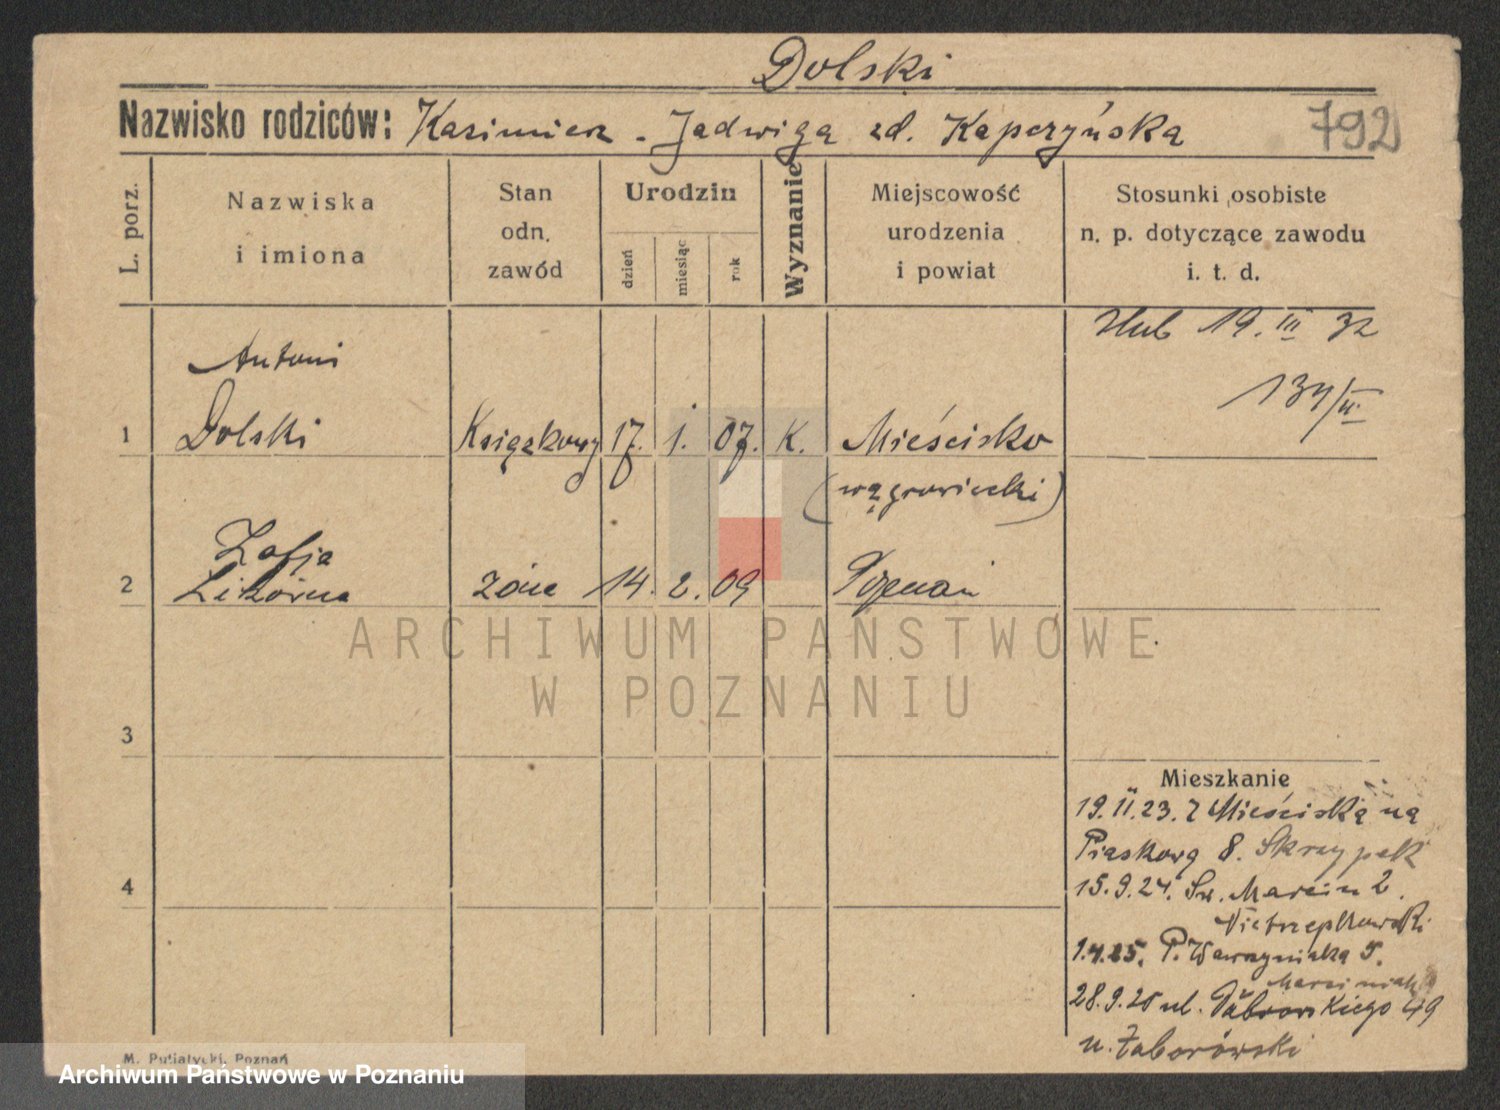 Dolski
Nazwisko rodziców: Kazimierz - Jadwiga zd. Kapczyńska
792
L. porz.
Nazwiska
i imiona
Stan
odn.
zawód
Urodzin
dzień
miesiąc
rok
Wyznanie
Miejscowość
urodzenia
i powiat
Stosunki osobiste
n. p. dotyczące zawodu
i. t. d.
ślub 19. III 32
Antoni
1 Dolski Książkowy 17. 1. 07. K. Mieścisko
(wągrowiecki)
Zofja
2 żona 14. 2. 09 Poznań
ARCHIWUM PAŃSTWOWE
W POZNANIU
3
4
Mieszkanie
19.II.23. z Mieściska na
Piaskową 8. Skrzypek
15.9.24. Św. Marcin 2.
1.4.25. P. Wawrzyniaka 5.
Marciniak
28.9.25 ul. Dąbrowskiego 49
u. Zaborówski
M. Putiatycki, Poznań
Archiwum Państwowe w Poznaniu